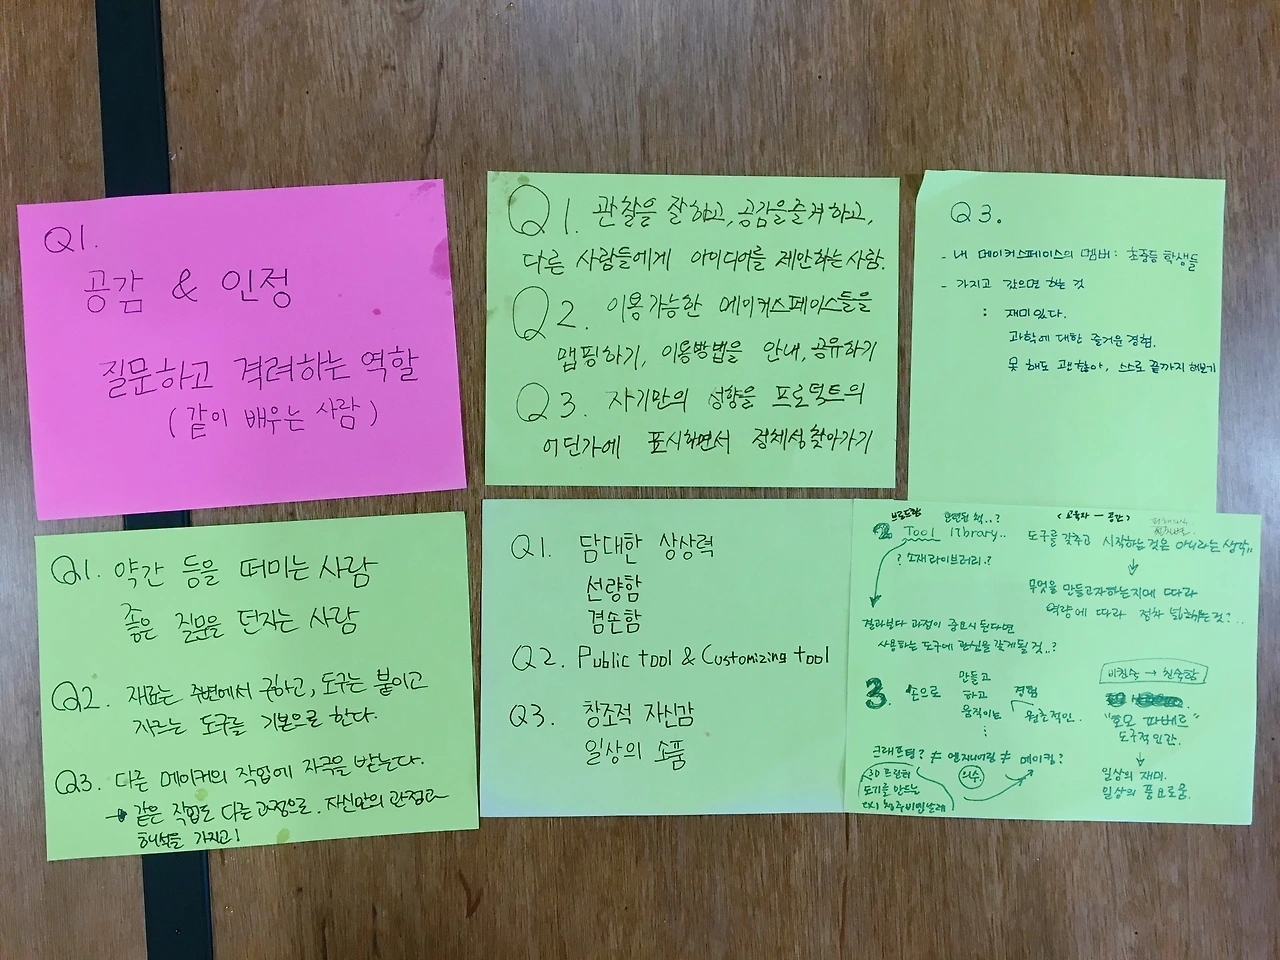 Q1.
공감 & 인정
질문하고 격려하는 역할
(같이 배우는 사람)
Q1. 관찰을 잘하고, 공감을 즐겨하고,
다른 사람들에게 아이디어를 제안하는 사람.
Q2. 이용가능한 메이커스페이스들을
맵핑하기, 이용방법을 안내, 공유하기
Q3. 자기만의 성향을 프로덕트의
어딘가에 표시하면서 정체성찾아가기
Q3.
- 내 메이커스페이스의 멤버: 초중등 학생들
- 가지고 갔으면 하는 것
: 재미있다.
과학에 대한 즐거운 경험.
못 해도 괜찮아, 스스로 끝까지 해보기
Q1. 약간 등을 떠미는 사람
좋은 질문을 던지는 사람
Q2. 재료는 주변에서 구하고, 도구는 붙이고
자르는 도구를 기본으로 한다.
Q3. 다른 메이커의 작업에 자극을 받는다.
→ 같은 작업도 다른 과정으로. 자신만의 관점과
해석을 가지고!
Q1. 담대한 상상력
선량함
겸손함
Q2. Public tool & Customizing tool
Q3. 창조적 자신감
일상의 소품
2. Tool library..
? 소재라이브러리.?
결과보다 과정이 중요시 된다면
사용하는 도구에 관심을 갖게될 것..?
(교육자 — 공간)
도구를 갖추고 시작하는것은 아니라는 생각..
무엇을 만들고자하는지에 따라
역량에 따라 점차 넓혀가는것?..
3. 손으로
만들고
하고
움직이는
⋮
경험
원초적인.
크래프팅? ≠ 엔지니어링 ≠ 메이킹?
의수
3D 프린터
도기를 만드는
ex) 청주비엔날레
미친숙 → 친숙함
"호모 파베르"
도구적인간.
일상의 재미.
일상의 풍요로움.